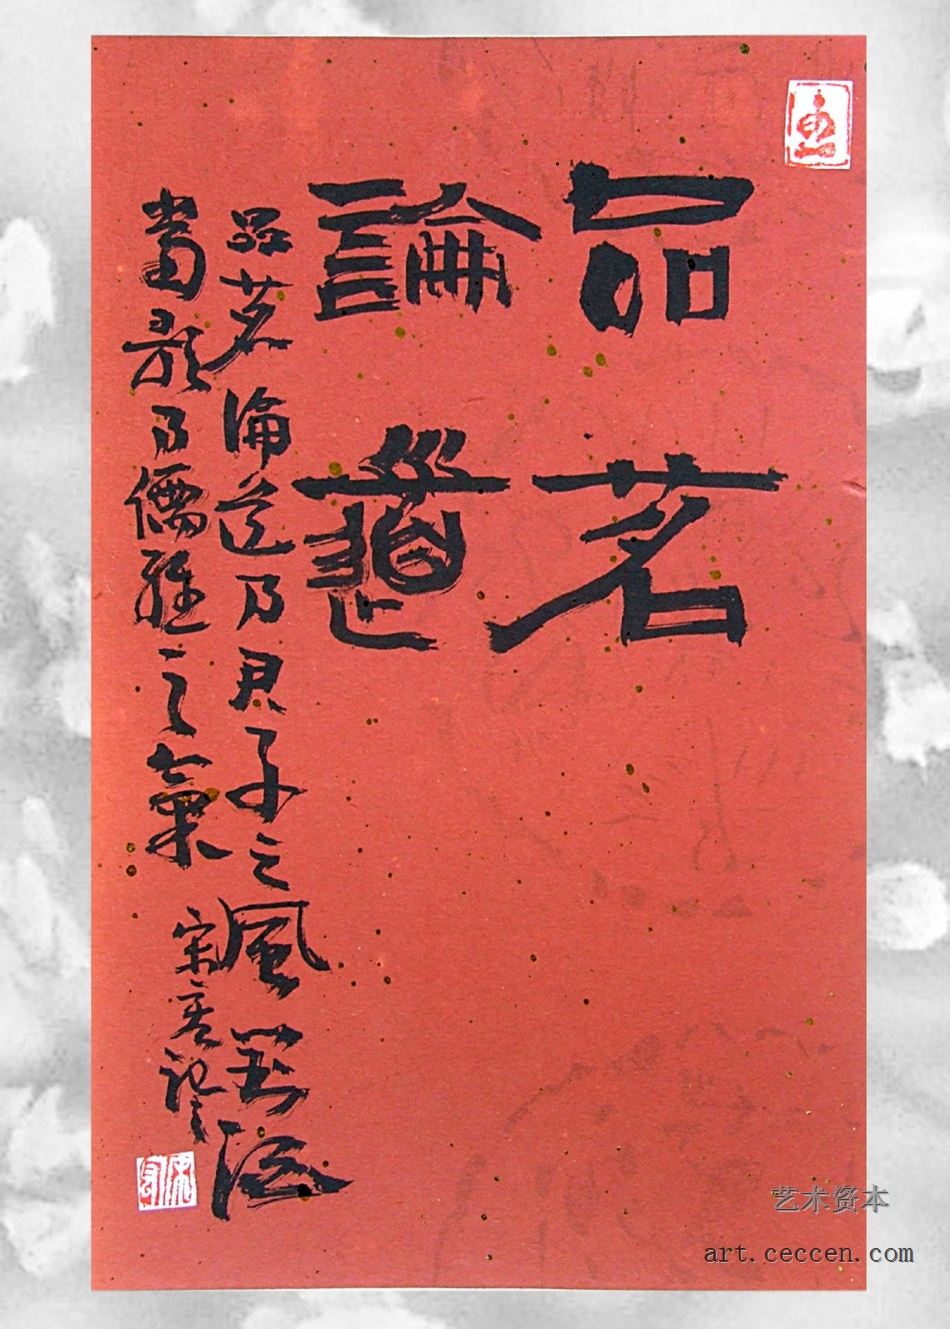 品茗
論道
品茗論道乃君子之風對酒
當歌乃儒雅之氣
宋
艺术资本
art.ceccen.com